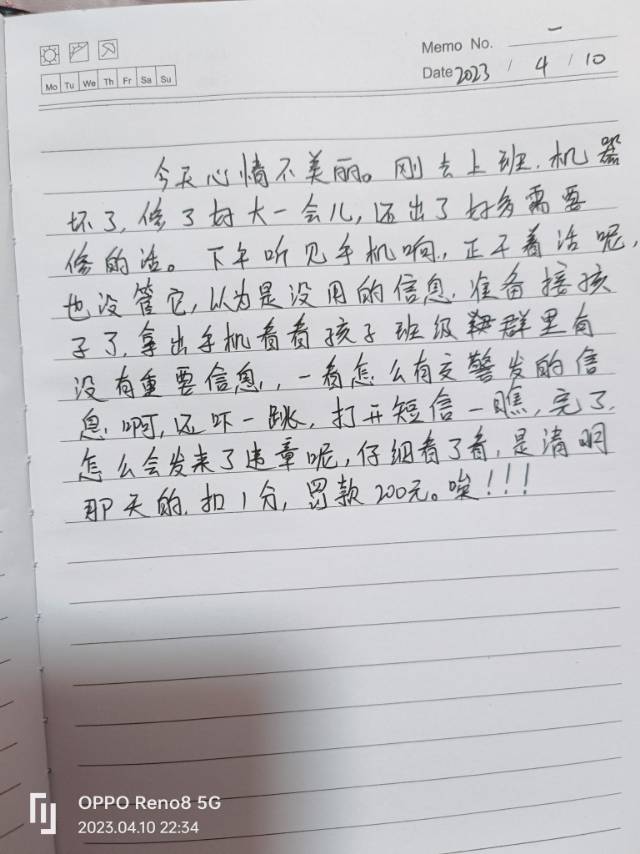 Memo No. 一
Mo Tu We Th Fr Sa Su
Date 2023 / 4 / 10
今天心情不美丽。刚去上班,机器
坏了,修了好大一会儿,还出了好多需要
修的活。下午听见手机响,正干着活呢,
也没管它,以为是没用的信息,准备接孩
子了,拿出手机看看孩子班级群里有
没有重要信息,一看怎么有交警发的信
息,啊,还吓一跳,打开短信一瞧,完了,
怎么会发来了违章呢,仔细看了看,是清明
那天的,扣1分,罚款200元。唉!!!
OPPO Reno8 5G
2023.04.10 22:34